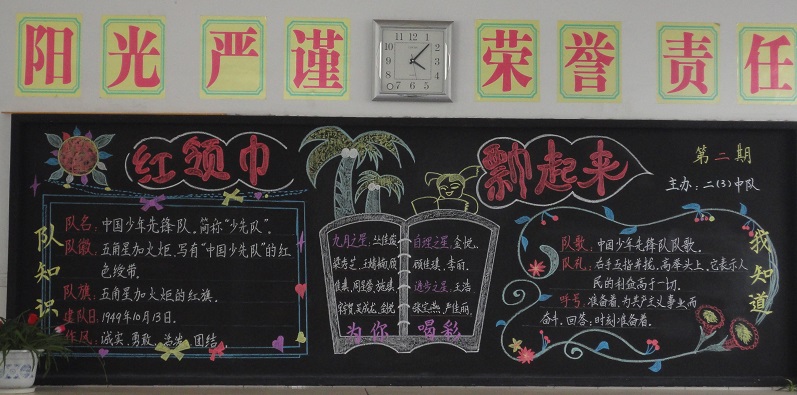 阳光 严谨 荣誉 责任
红领巾
飘起来
第二期
主办：二(3)中队
队知识
队名：中国少年先锋队。简称“少先队”。
队徽：五角星加火炬，写有“中国少先队”的红
色绶带。
队旗：五角星加火炬的红旗。
建队日：1949年10月13日。
作风：诚实、勇敢、活泼、团结。
九月之星：
自理之星：金悦、
李丽。
进步之星：王浩
为你喝彩
队歌：中国少年先锋队队歌。
队礼：右手五指并拢，高举头上，它表示人
民的利益高于一切。
呼号：准备着，为共产主义事业而
奋斗。回答：时刻准备着。
我知道